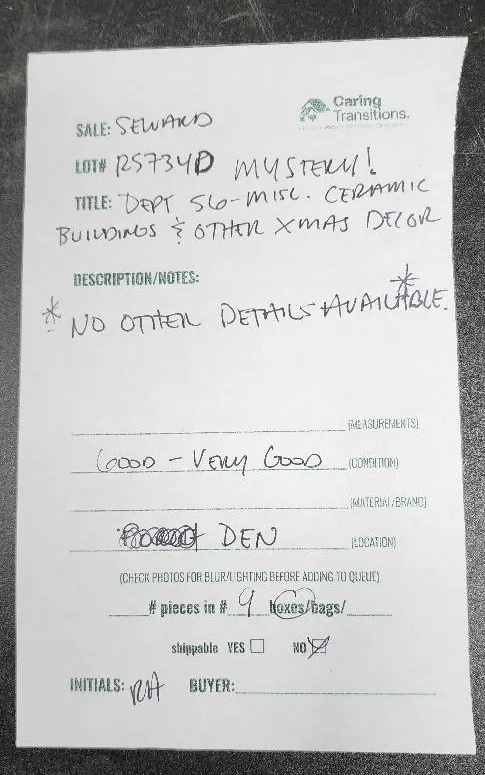 Caring
Transitions.
SALE: SEWARD
LOT# RS734D MYSTERY!
TITLE: DEPT 56-MISC. CERAMIC
BUILDINGS & OTHER XMAS DECOR
DESCRIPTION/NOTES:
* NO OTHER DETAILS AVAILABLE. *
(MEASUREMENTS)
GOOD - VERY GOOD (CONDITION)
(MATERIAL/BRAND)
DEN (LOCATION)
(CHECK PHOTOS FOR BLUR/LIGHTING BEFORE ADDING TO QUEUE)
# pieces in # 9 boxes/bags/
shippable YES ☐ NO ☒
INITIALS: RH BUYER: